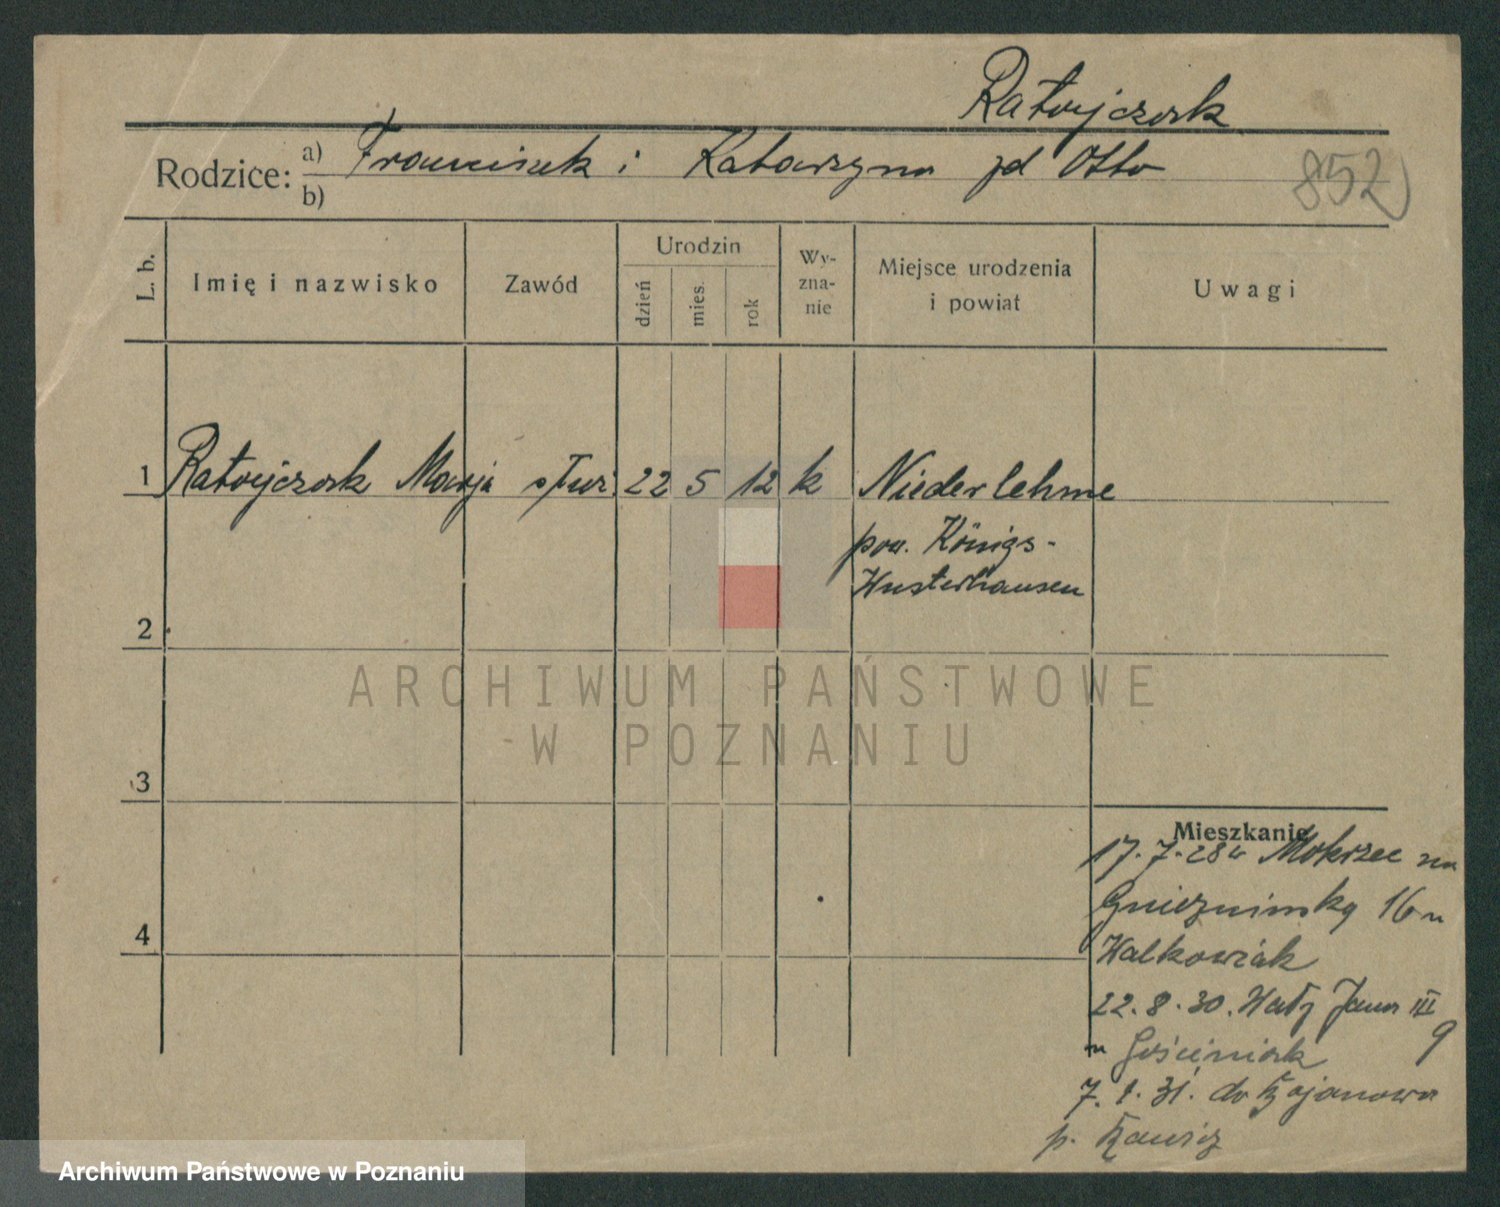 Ratajczak
Rodzice: a) Franciszek i Katarzyna zd Otto
b)
852
L. b.
Imię i nazwisko
Zawód
Urodzin
dzień
mies.
rok
Wy-
zna-
nie
Miejsce urodzenia
i powiat
Uwagi
1 Ratajczak Marja służ. 22 5 12 k Niederlehme
pow. Königs-
Wusterhausen
2
3
4
Mieszkanie
17.7.28 Mokrzec
16
Walkowiak
22.8.30. Wały Jana III
9
Gościniak
7. 31. do
p.
ARCHIWUM PAŃSTWOWE
W POZNANIU
Archiwum Państwowe w Poznaniu